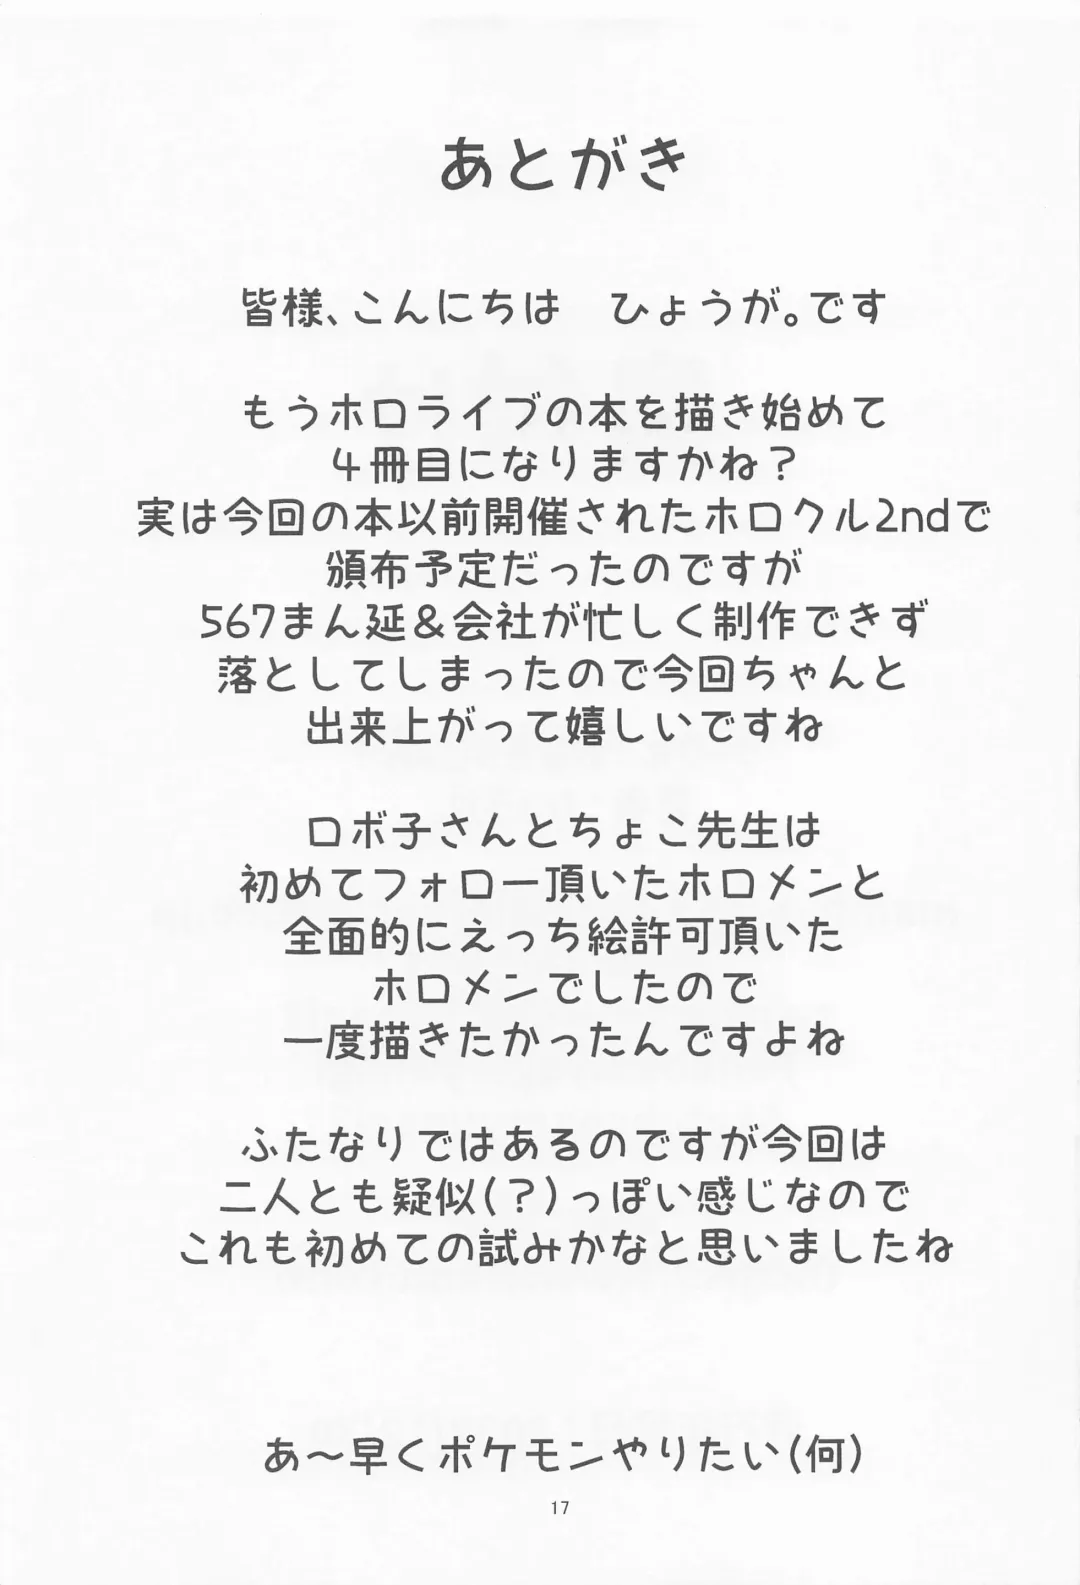 あとがき
皆様、こんにちは　ひょうが。です
もうホロライブの本を描き始めて
4冊目になりますかね？
実は今回の本以前開催されたホロクル2ndで
頒布予定だったのですが
567まん延＆会社が忙しく制作できず
落としてしまったので今回ちゃんと
出来上がって嬉しいですね
ロボ子さんとちょこ先生は
初めてフォロー頂いたホロメンと
全面的にえっち絵許可頂いた
ホロメンでしたので
一度描きたかったんですよね
ふたなりではあるのですが今回は
二人とも疑似(？)っぽい感じなので
これも初めての試みかなと思いましたね
あ～早くポケモンやりたい(何)
17